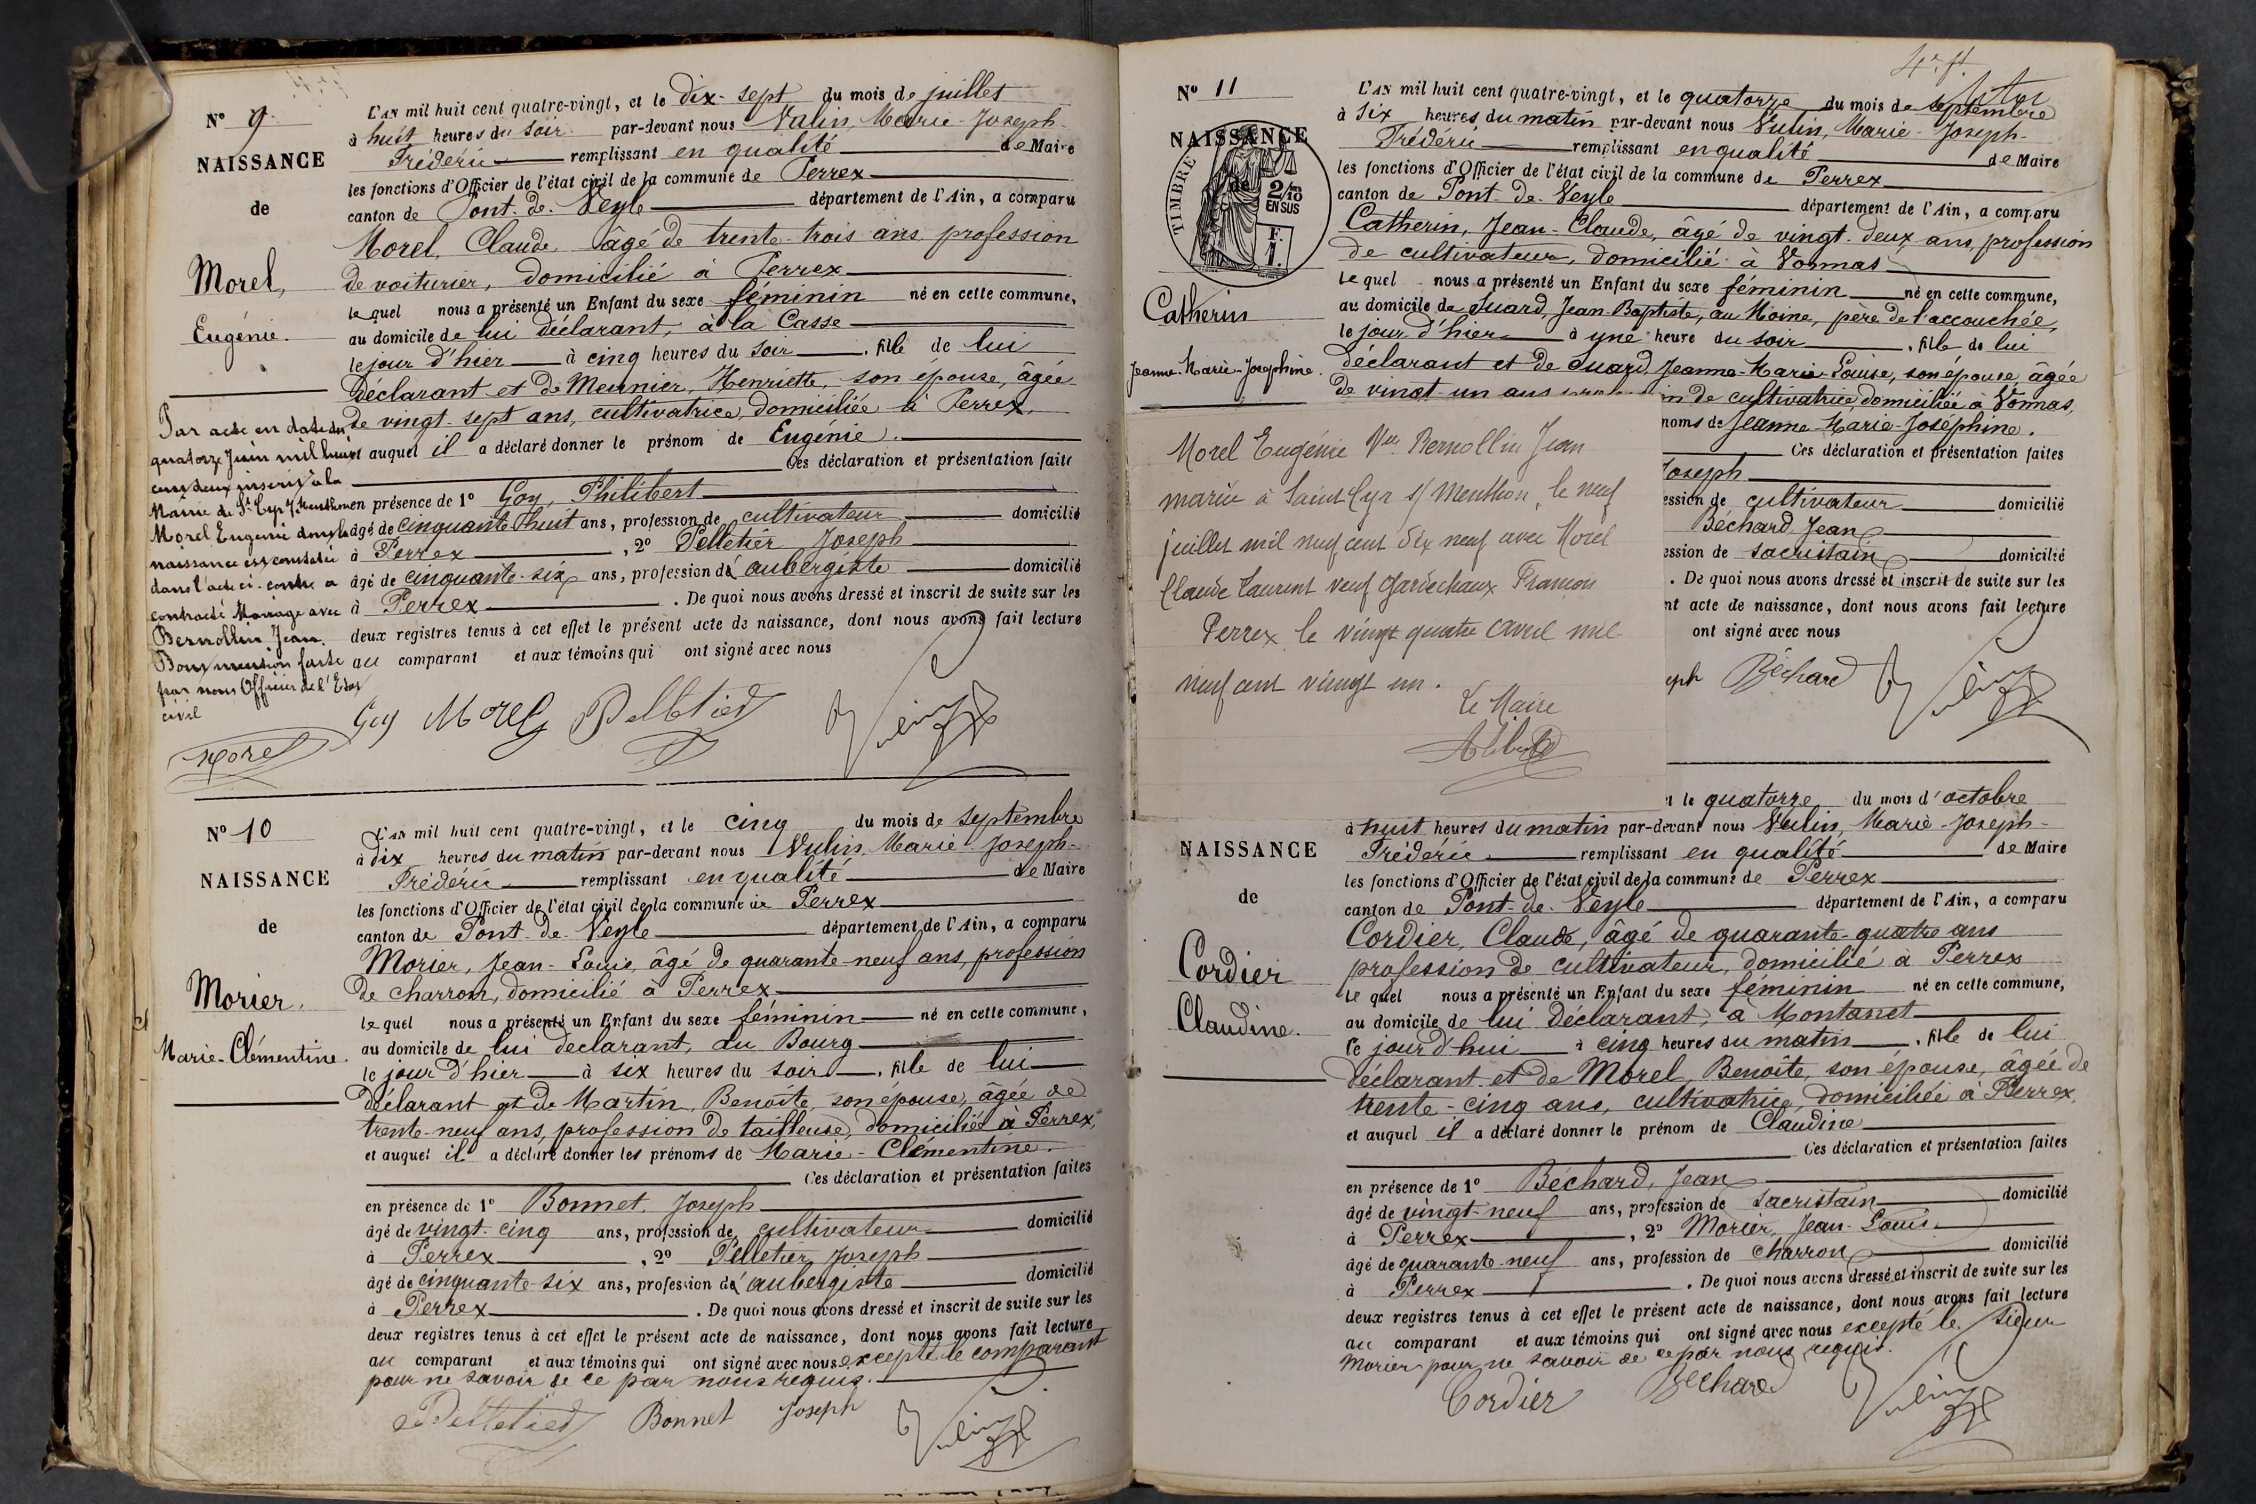 N° 9.
NAISSANCE
de
Morel,
Eugénie.
L'AN mil huit cent quatre-vingt, et le dix-sept du mois de juillet
à huit heures du soir par-devant nous Vulin, Marie-Joseph-
Frédéric remplissant en qualité de Maire
les fonctions d'Officier de l'état civil de la commune de Perrex
canton de Pont-de-Veyle département de l'Ain, a comparu
Morel, Claude, âgé de trente-trois ans profession
de voiturier, domicilié à Perrex
lequel nous a présenté un Enfant du sexe féminin né en cette commune,
au domicile de lui déclarant, à la Casse
le jour d'hier à cinq heures du soir , fille de lui
déclarant et de Meunier, Henriette, son épouse, âgée
de vingt-sept ans, cultivatrice, domiciliée à Perrex.
auquel il a déclaré donner le prénom de Eugénie.
Ces déclaration et présentation faite
en présence de 1° Goy, Philibert
âgé de cinquante huit ans, profession de cultivateur domicilié
à Perrex , 2° Pelletier Joseph
âgé de cinquante-six ans, profession d'aubergiste domicilié
à Perrex . De quoi nous avons dressé et inscrit de suite sur les
deux registres tenus à cet effet le présent acte de naissance, dont nous avons fait lecture
au comparant et aux témoins qui ont signé avec nous
Goy Morel Pelletier Vulin
Par acte en date du
quatorze Juin mil neuf
cent deux inscrit à la
Mairie de St Cyr s/ Menthon
Morel Eugénie dont la
naissance est constatée
dans l'acte ci-contre a
contracté Mariage avec
Bernollin Jean.
Dont mention faite
par nous Officier de l'Etat
civil
Morel
N° 10
NAISSANCE
de
Morier.
Marie-Clémentine.
L'AN mil huit cent quatre-vingt, et le cinq du mois de septembre
à dix heures du matin par-devant nous Vulin, Marie-Joseph-
Frédéric remplissant en qualité de Maire
les fonctions d'Officier de l'état civil de la commune de Perrex
canton de Pont-de-Veyle département de l'Ain, a comparu
Morier, Jean-Louis, âgé de quarante-neuf ans, profession
de charron, domicilié à Perrex
lequel nous a présenté un Enfant du sexe féminin né en cette commune,
au domicile de lui déclarant, au Bourg
le jour d'hier à six heures du soir , fille de lui
déclarant et de Martin, Benoîte, son épouse, âgée de
trente-neuf ans, profession de tailleuse, domiciliée à Perrex,
et auquel il a déclaré donner les prénoms de Marie-Clémentine.
Ces déclaration et présentation faites
en présence de 1° Bonnet, Joseph
âgé de vingt-cinq ans, profession de cultivateur domicilié
à Perrex , 2° Pelletier, Joseph
âgé de cinquante-six ans, profession d'aubergiste domicilié
à Perrex . De quoi nous avons dressé et inscrit de suite sur les
deux registres tenus à cet effet le présent acte de naissance, dont nous avons fait lecture
au comparant et aux témoins qui ont signé avec nous excepté le comparant
pour ne savoir de ce par nous requis.
Pelletier Bonnet Joseph Vulin
N° 11
NAISSANCE
de
TIMBRE
2/10
EN SUS
F.
1.
Catherin
Jeanne-Marie-Joséphine.
L'AN mil huit cent quatre-vingt, et le quatorze du mois de septembre
à six heures du matin par-devant nous Vulin, Marie-Joseph-
Frédéric remplissant en qualité de Maire
les fonctions d'Officier de l'état civil de la commune de Perrex
canton de Pont-de-Veyle département de l'Ain, a comparu
Catherin, Jean-Claude, âgé de vingt-deux ans, profession
de cultivateur, domicilié à Vonnas
lequel nous a présenté un Enfant du sexe féminin né en cette commune,
au domicile de Suard, Jean-Baptiste, au Moine, père de l'accouchée,
le jour d'hier à une heure du soir , fille de lui
déclarant et de Suard Jeanne-Marie-Louise, son épouse, âgée
de vingt-un ans de cultivatrice, domiciliée à Vonnas,
noms de Jeanne-Marie-Joséphine.
Ces déclaration et présentation faites
Joseph
ession de cultivateur domicilié
Béchard Jean
ession de sacristain domicilié
. De quoi nous avons dressé et inscrit de suite sur les
nt acte de naissance, dont nous avons fait lecture
ont signé avec nous
eph Béchard Vulin
Morel Eugénie Vve Bernollin Jean
mariée à Saint Cyr s/ Menthon, le neuf
juillet mil neuf cent dix neuf avec Morel
Claude Laurent veuf Maréchaux Françoise
Perrex le vingt quatre avril mil
neuf cent vingt un.
Le Maire
NAISSANCE
de
Cordier
Claudine.
t le quatorze du mois d'octobre
à huit heures du matin par-devant nous Vulin, Marie-Joseph-
Frédéric remplissant en qualité de Maire
les fonctions d'Officier de l'état civil de la commune de Perrex
canton de Pont-de-Veyle département de l'Ain, a comparu
Cordier, Claude, âgé de quarante-quatre ans
profession de cultivateur, domicilié à Perrex
lequel nous a présenté un Enfant du sexe féminin né en cette commune,
au domicile de lui déclarant, à Montanet
le jour d'hui à cinq heures du matin , fille de lui
déclarant et de Morel, Benoîte, son épouse, âgée de
trente-cinq ans, cultivatrice, domiciliée à Perrex,
et auquel il a déclaré donner le prénom de Claudine
Ces déclaration et présentation faites
en présence de 1° Béchard, Jean
âgé de vingt-neuf ans, profession de sacristain domicilié
à Perrex , 2° Morier, Jean-Louis
âgé de quarante-neuf ans, profession de charron domicilié
à Perrex . De quoi nous avons dressé et inscrit de suite sur les
deux registres tenus à cet effet le présent acte de naissance, dont nous avons fait lecture
au comparant et aux témoins qui ont signé avec nous excepté le sieur
Morier pour ne savoir de ce par nous requis.
Cordier Béchard Vulin